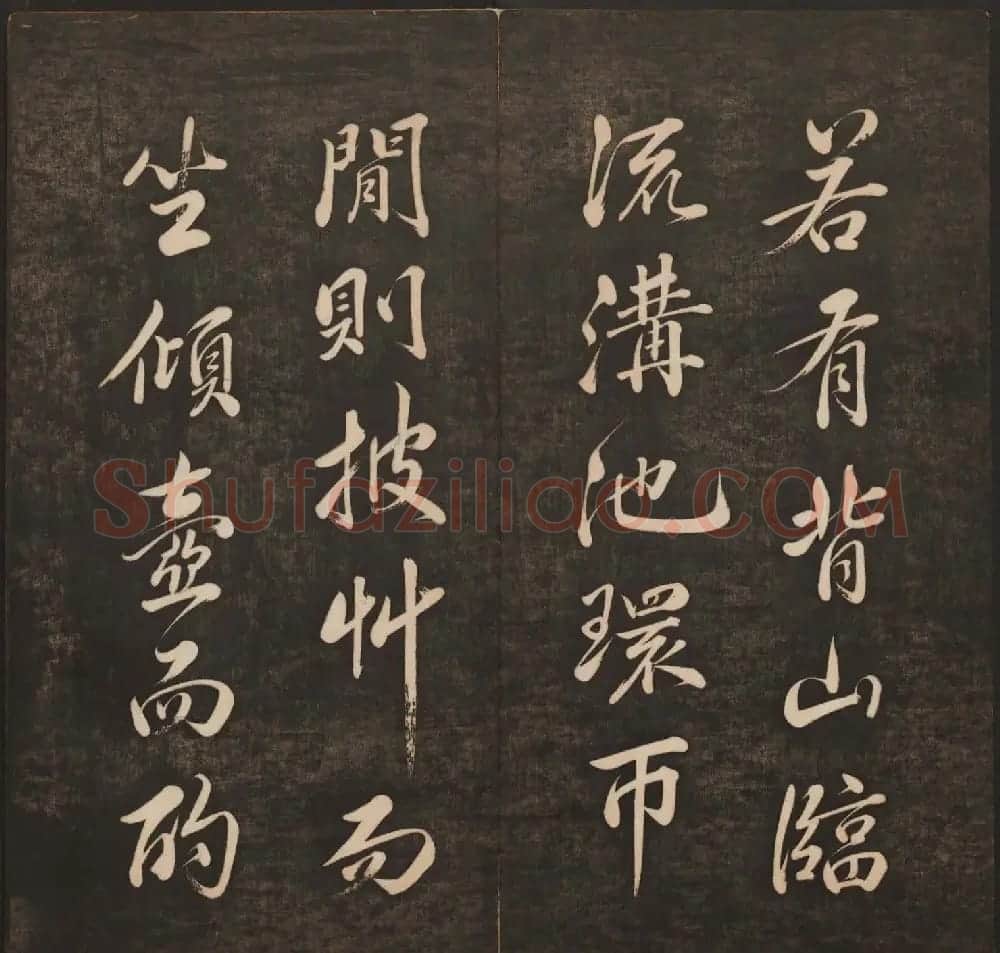 若有背山臨
流溝池環帀
閒則披艸而
坐傾壺而酌
Shufaziliao.COM